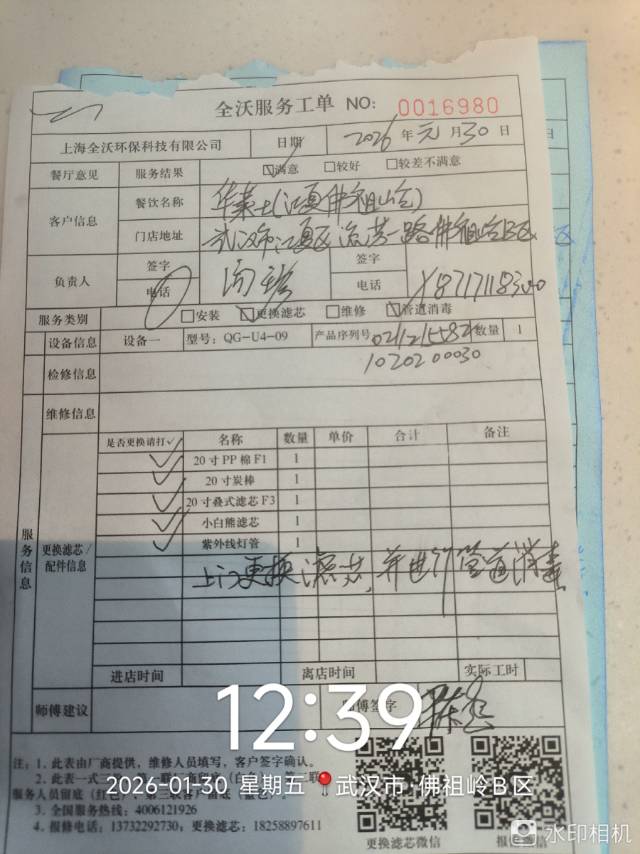 全沃服务工单 NO: 0016980
上海全沃环保科技有限公司 日期 2026 年 元 月 30 日
餐厅意见 服务结果 ☑满意 □较好 □较差不满意
客户信息 餐饮名称 华莱士(江夏佛祖岭店)
门店地址 武汉市江夏区流芳一路佛祖岭B区
负责人 签字 签字
电话 电话
服务类别 □安装 ☑更换滤芯 □维修 ☑管道消毒
设备信息 设备一 型号: QG-U4-09 产品序列号 数量 1
1020200030
检修信息
维修信息
服务信息
更换滤芯/配件信息
是否更换请打✓ 名称 数量 单价 合计 备注
✓ 20寸PP棉F1 1
✓ 20寸炭棒 1
✓ 20寸叠式滤芯F3 1
✓ 小白熊滤芯 1
✓ 紫外线灯管 1
上门更换滤芯,并进行管道消毒
进店时间 离店时间 实际工时
师傅建议 师傅签字
12:39
2026-01-30 星期五 武汉市·佛祖岭B区
注: 1. 此表由厂商提供,维修人员填写,客户签字确认。
2. 此表一式
服务人员留底
3. 全国服务热线: 4006121926
4. 报修电话: 13732292730; 更换滤芯: 18258897611
更换滤芯微信
水印相机